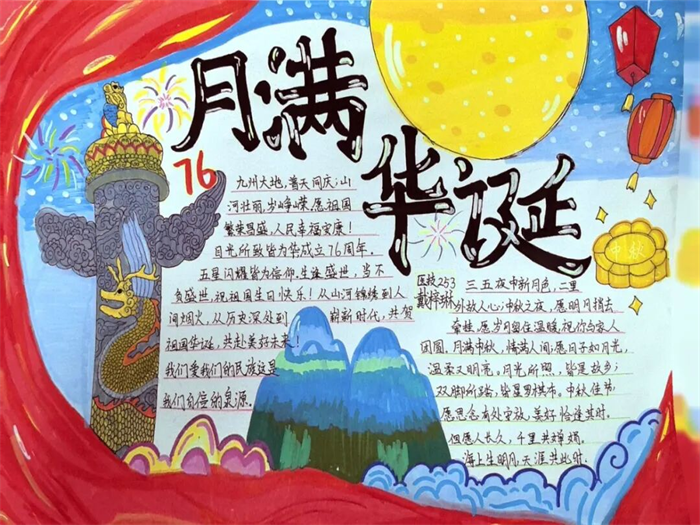 月满
华诞
76
九州大地，普天同庆；山
河壮丽，岁峥嵘，愿祖国
繁荣昌盛，人民幸福安康！
目光所致皆为华成立76周年.
五星闪耀皆为信仰.生逢盛世，当不
负盛世，祝祖国生日快乐！从山河锦绣到人
间烟火，从历史深处到 崭新时代，共贺
祖国华诞，共赴美好未来！
我们爱我们的民族这是
我们自信的泉源.
医技253
戴梓琳
中秋
三五夜中新月色，二里
外故人心；中秋之夜，愿明月捎去
牵挂，愿岁月留住温暖，祝你与家人
团圆.月满中秋，情满人间；愿日子如月光，
温柔又明亮。月光所照，皆是故乡；
双脚所踏，皆是
中秋佳节
愿思念有处安放，美好恰逢其时.
但愿人长久，千里共婵娟.
海上生明月，天涯共此时.